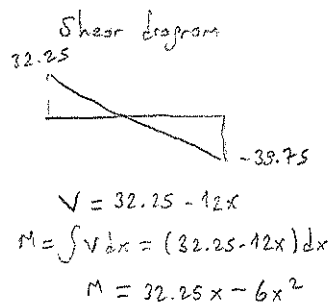 Shear diagram
32.25
-39.75
V = 32.25 - 12x
M = ∫ V dx = (32.25 - 12x) dx
M = 32.25x - 6x²